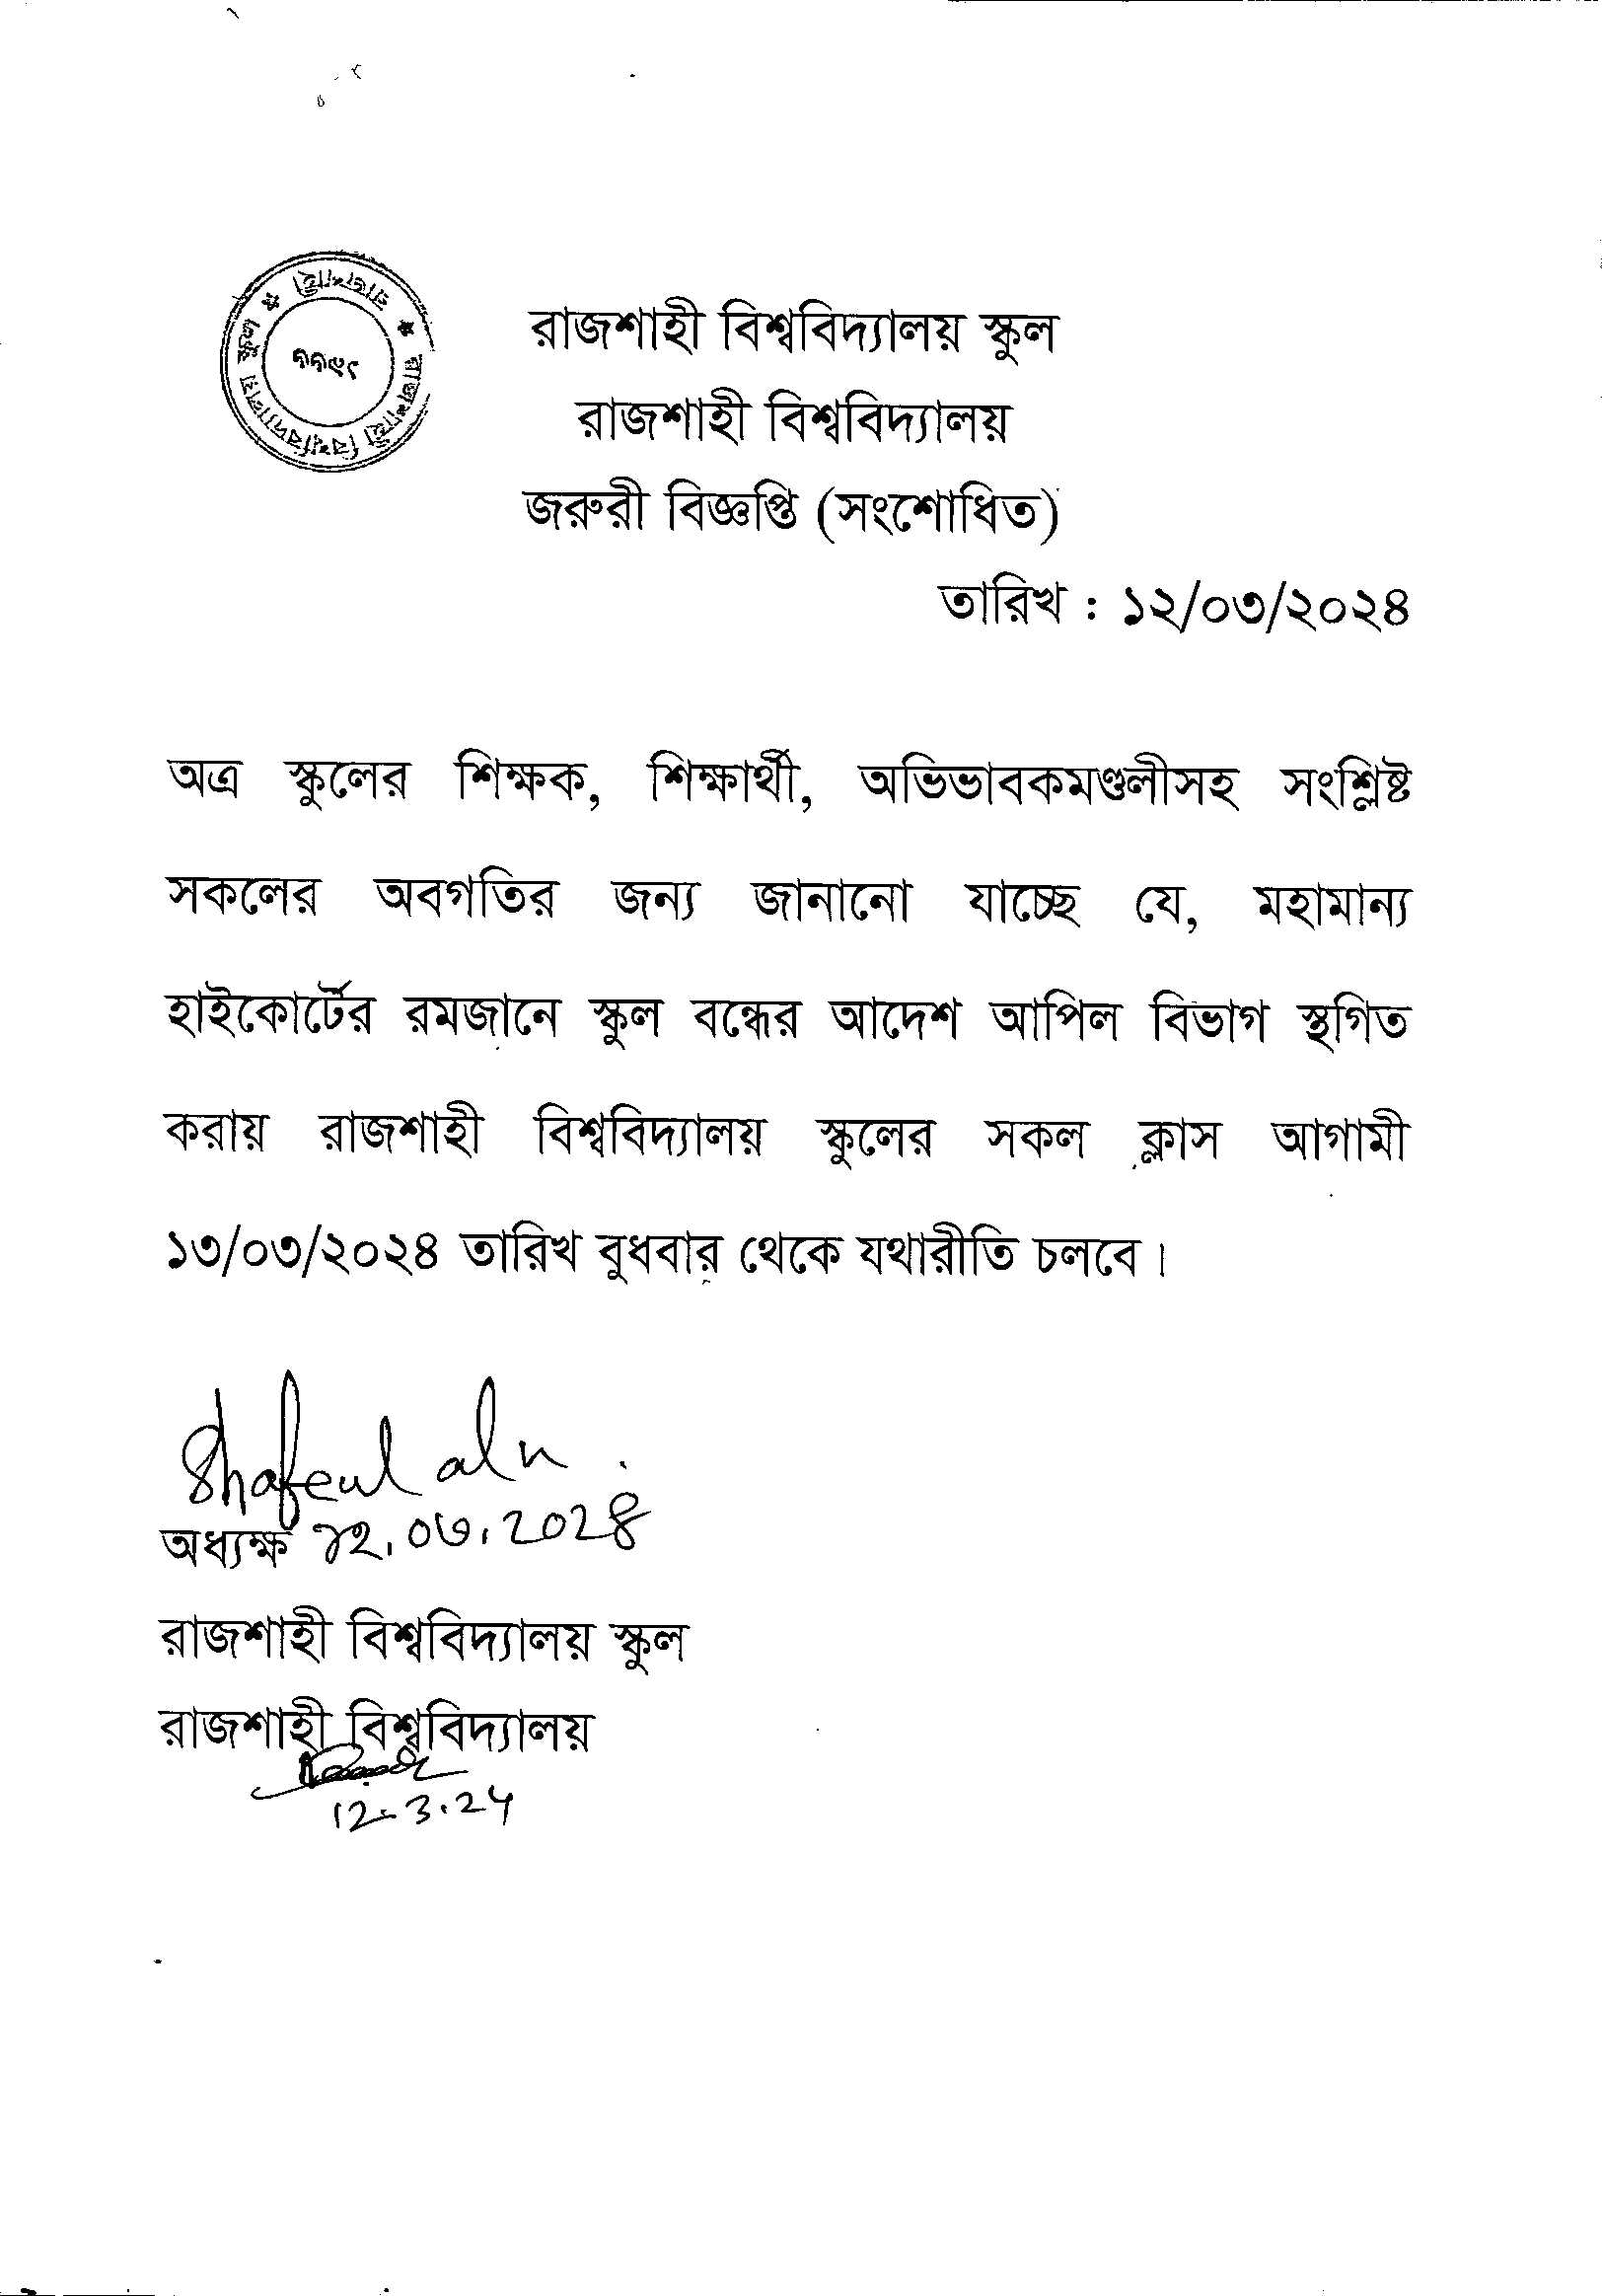 রাজশাহী বিশ্ববিদ্যালয় স্কুল
রাজশাহী বিশ্ববিদ্যালয়
জরুরী বিজ্ঞপ্তি (সংশোধিত)
তারিখ : ১২/০৩/২০২৪
রাজশাহী বিশ্ববিদ্যালয় স্কুল * রাজশাহী *
১৯৬৬
অত্র স্কুলের শিক্ষক, শিক্ষার্থী, অভিভাবকমণ্ডলীসহ সংশ্লিষ্ট
সকলের অবগতির জন্য জানানো যাচ্ছে যে, মহামান্য
হাইকোর্টের রমজানে স্কুল বন্ধের আদেশ আপিল বিভাগ স্থগিত
করায় রাজশাহী বিশ্ববিদ্যালয় স্কুলের সকল ক্লাস আগামী
১৩/০৩/২০২৪ তারিখ বুধবার থেকে যথারীতি চলবে।
Shafeul
অধ্যক্ষ ১২.০৩.২০২৪
রাজশাহী বিশ্ববিদ্যালয় স্কুল
রাজশাহী বিশ্ববিদ্যালয়
12.3.24